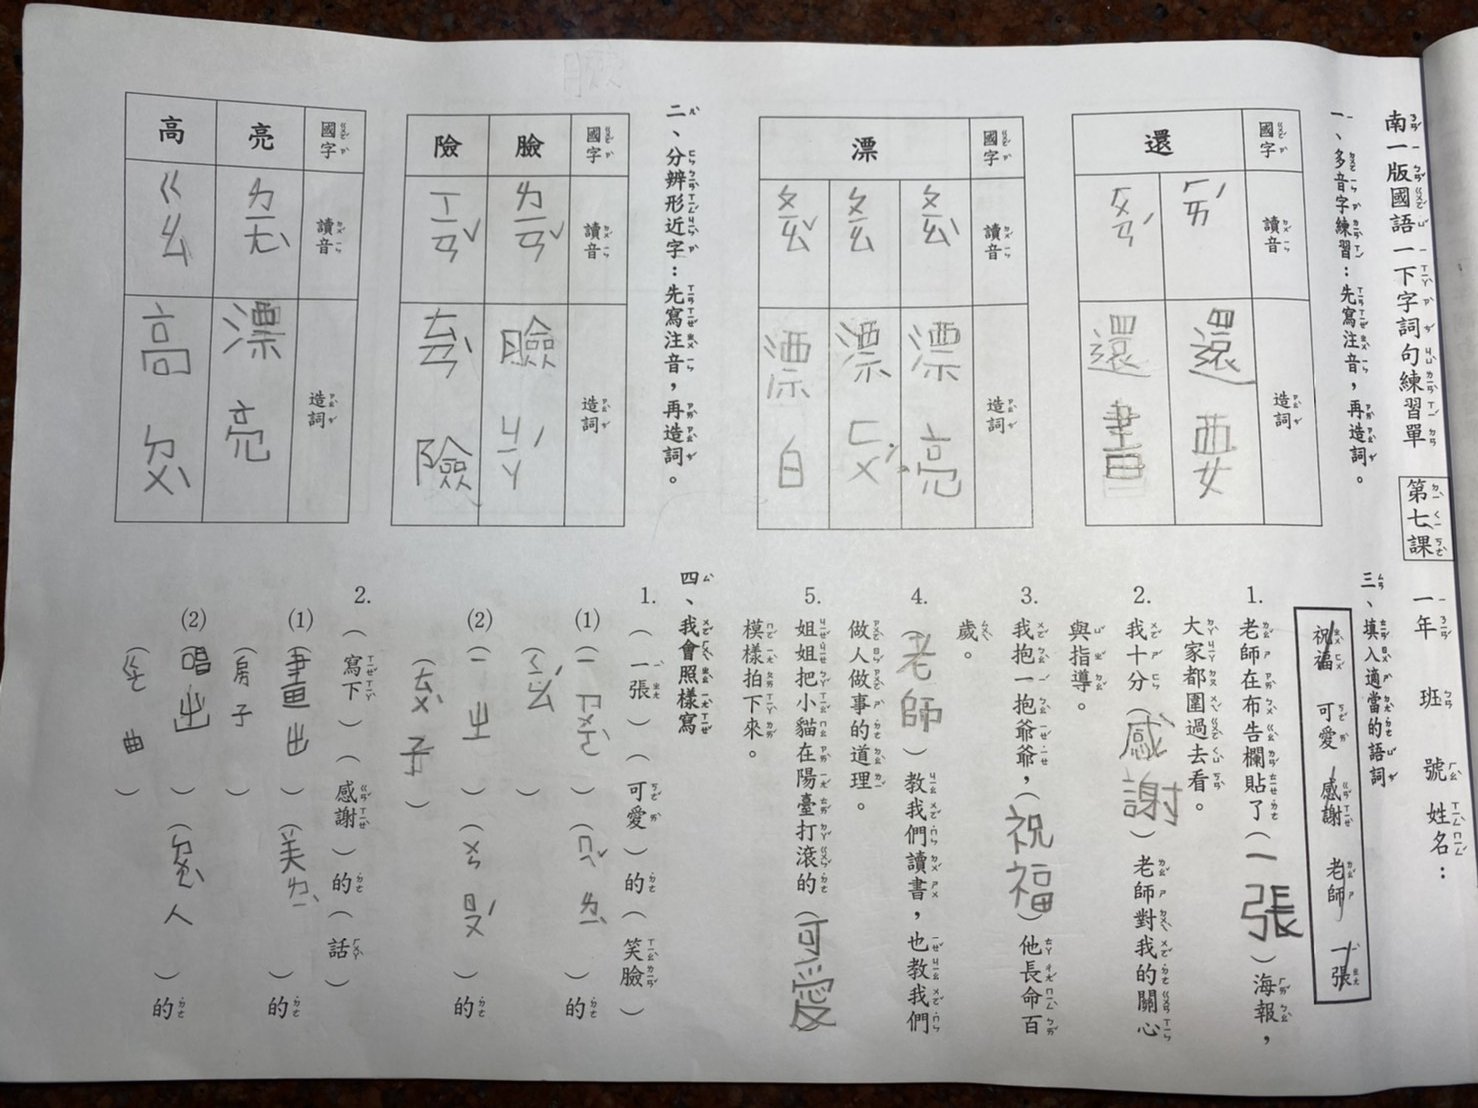 南一版國語一下字詞句練習單 第七課 一年 班 號 姓名：
一、多音字練習：先寫注音，再造詞。
國字 讀音 造詞
還
ㄏㄞˊ 還要
ㄏㄨㄢˊ 還書
國字 讀音 造詞
漂
ㄆㄧㄠˋ 漂亮
ㄆㄧㄠ 漂ㄈㄨˊ
ㄆㄧㄠˇ 漂白
二、分辨形近字：先寫注音，再造詞。
國字 讀音 造詞
臉 ㄌㄧㄢˇ 臉ㄐㄧㄚˊ
險 ㄒㄧㄢˇ ㄊㄢˋ險
國字 讀音 造詞
亮 ㄌㄧㄤˋ 漂亮
高 ㄍㄠ 高ㄉㄨㄥ
三、填入適當的語詞
祝福 可愛 感謝 老師 一張
1. 老師在布告欄貼了（一張）海報，
大家都圍過去看。
2. 我十分（感謝）老師對我的關心
與指導。
3. 我抱一抱爺爺，（祝福）他長命百
歲。
4. （老師）教我們讀書，也教我們
做人做事的道理。
5. 姐姐把小貓在陽臺打滾的（可愛）
模樣拍下來。
四、我會照樣寫
1. （一張）（可愛）的（笑臉）
(1) （一 ）（ ）的
（ ）
(2) （一 ）（ ）的
（ 子）
2. （寫下）（感謝）的（話）
(1) （畫出）（美ㄌㄧˋ）的
（房子）
(2) （唱出）（ 人）的
（ 曲）